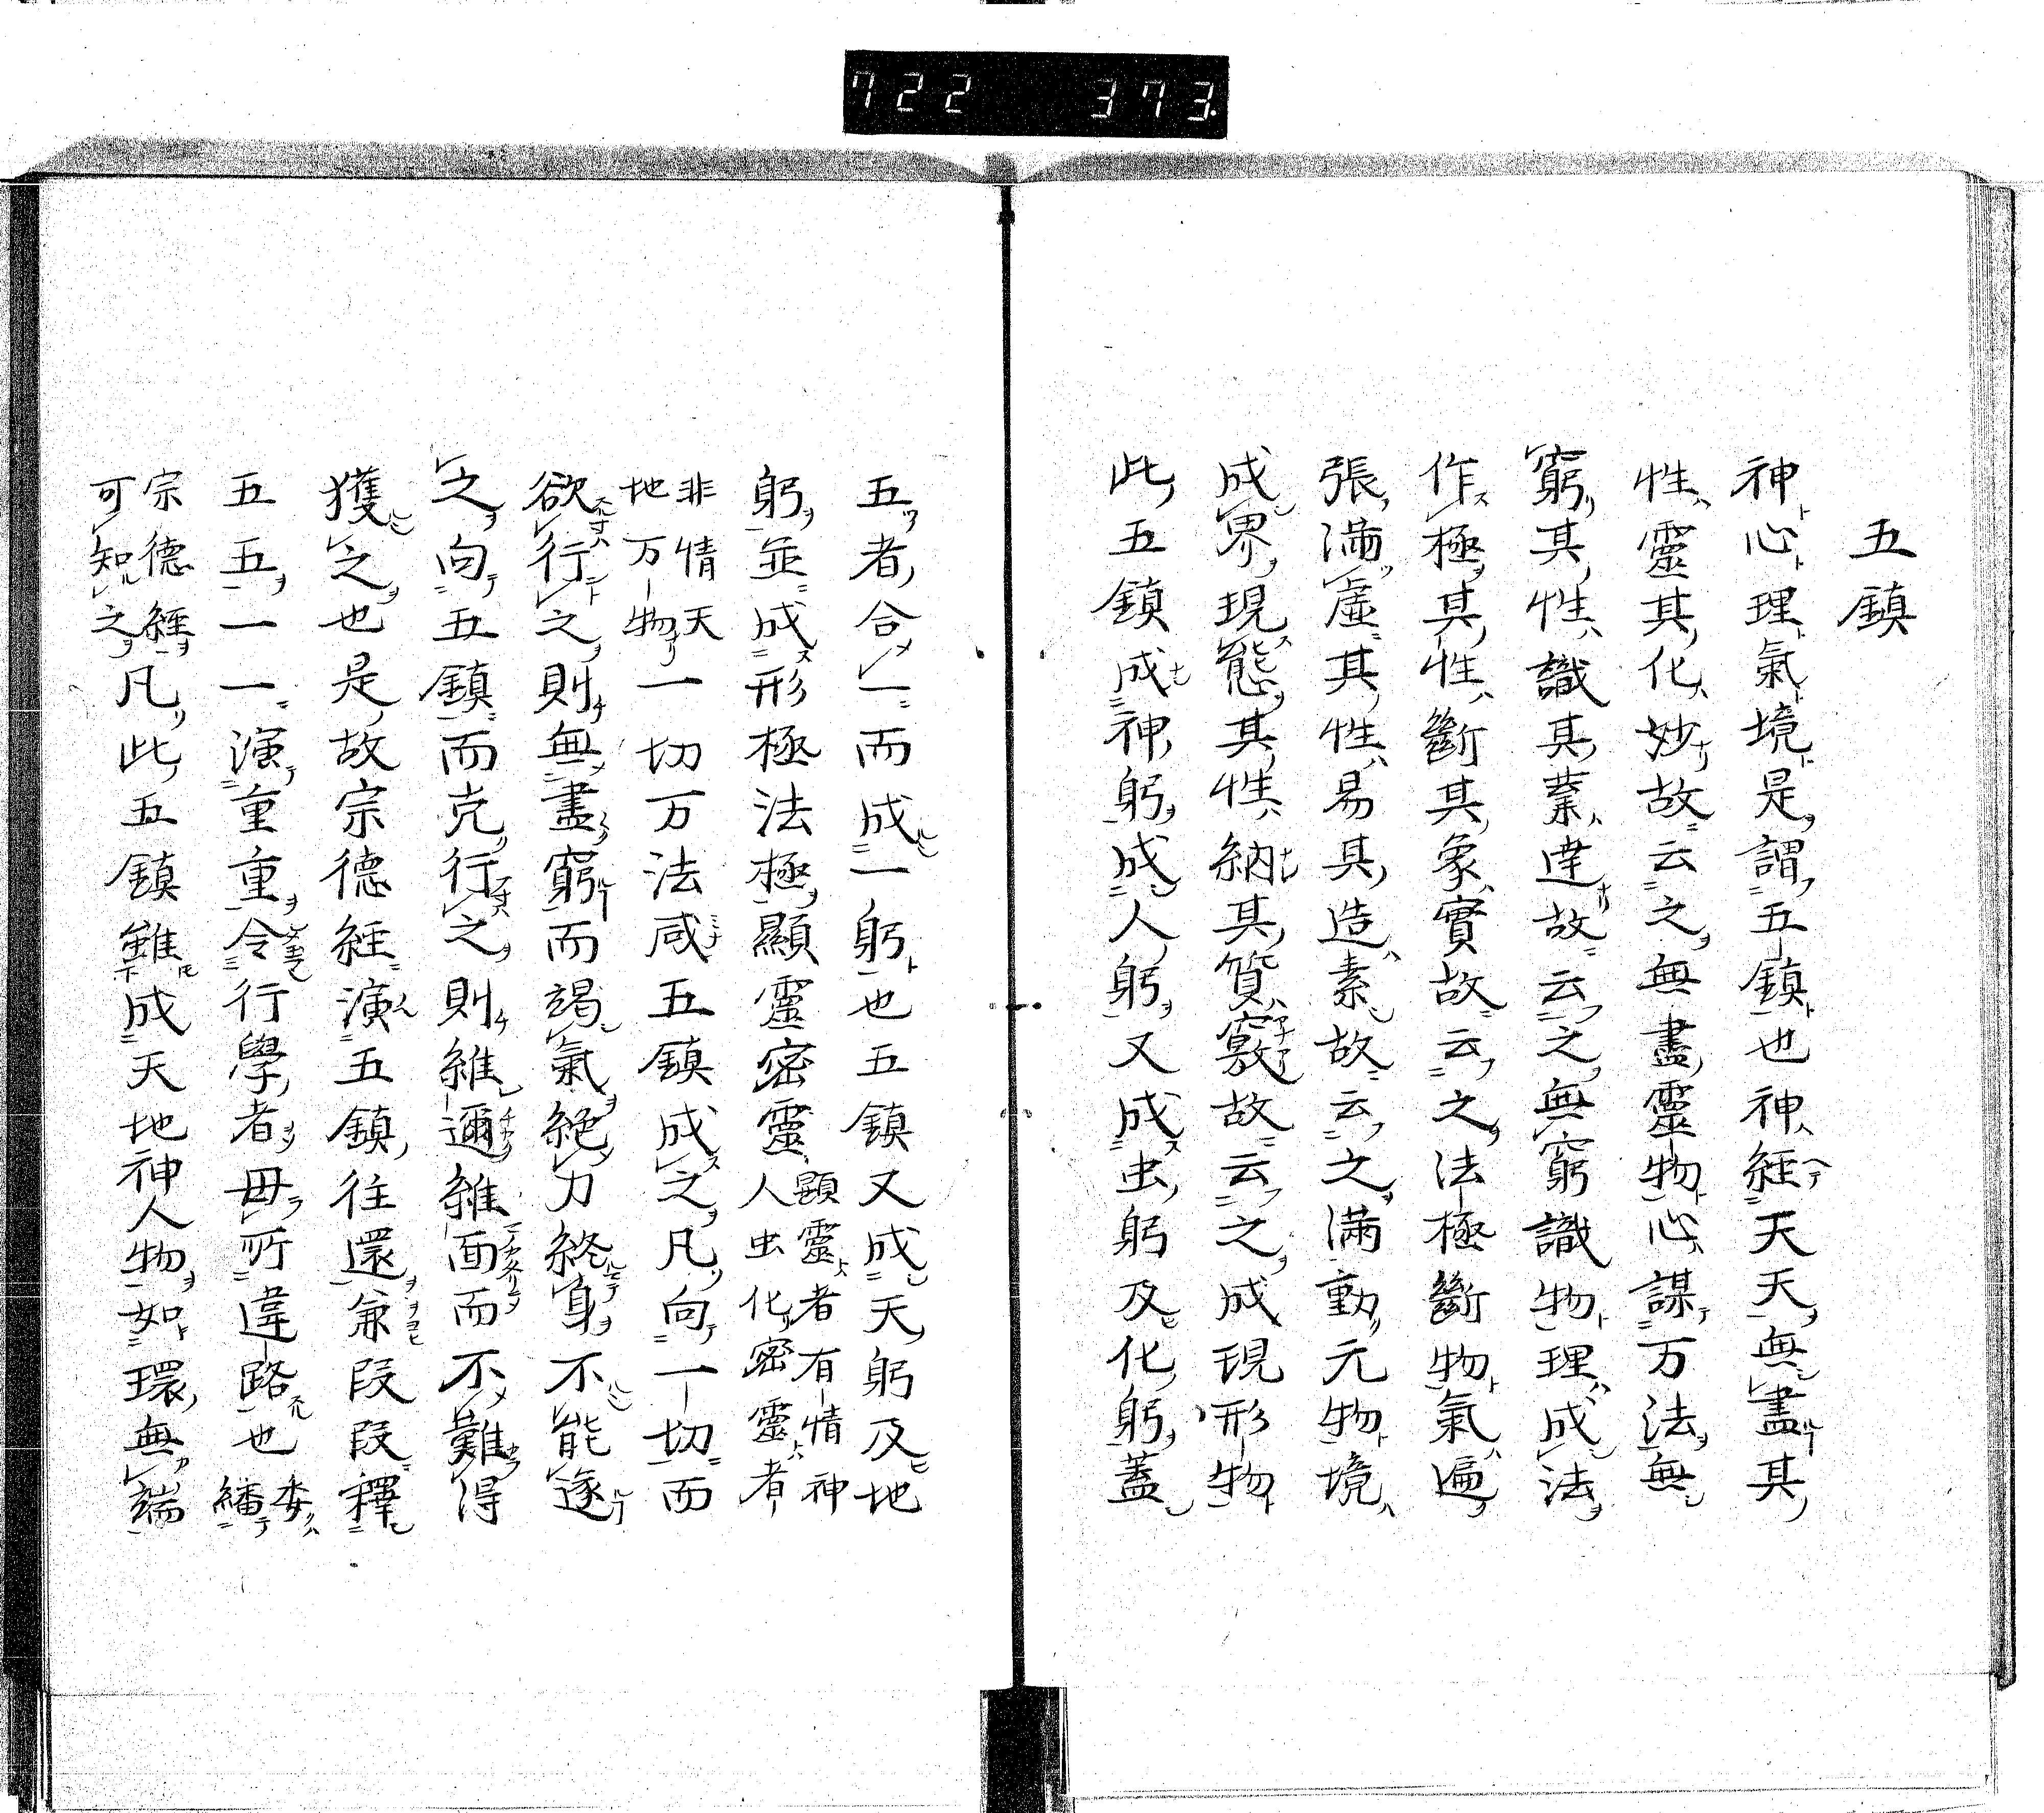 722 373
五鎮
神心理氣境是謂五鎮也神経天天無盡其
性靈其化妙故云之無盡靈物心謀万法無
窮其性識其業達故云之無窮識物理成法
作極其性斷其象實故云之法極斷物氣遍
張満虛其性易其造素故云之満動元物境
成界現態其性納其質竅故云之成現形物
此五鎮成神躬成人躬又成虫躬及化躬蓋
五者合一而成一躬也五鎮又成天躬及地
躬並成形極法極顯靈密靈顯靈者有情神人虫化密靈者
非情天地万物一切万法咸五鎮成之凡向一切而
欲行之則無盡窮而竭氣絶力終身不能遂
之向五鎮而克行之則雖邇雖面而不難得
獲之也是故宗德経演五鎮往還兼段段釋
五五一一演重重令行學者毋所違路也委繙
宗德経可知之凡此五鎮雖成天地神人物如環無端